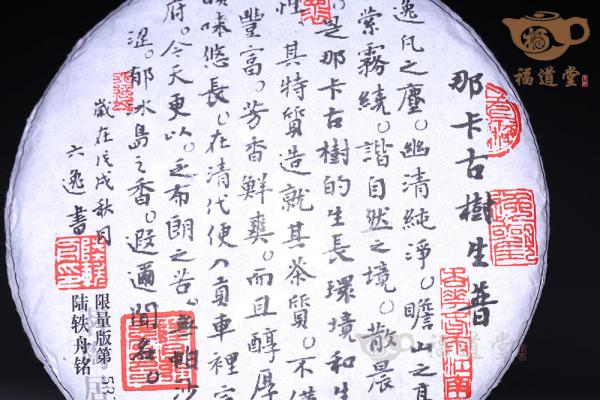 那卡古樹生普
逸凡之塵。幽清純淨。瞻山之高
縈霧繞。諧自然之境。散晨
是那卡古樹的生長環境和生
性。其特質造就其茶質。不僅
豐富。芳香鮮爽。而且醇厚
味悠長。在清代便入貢車裡宣
府。今天更以。乏布朗之苦。無帕沙
澀。郁水島之香。遐邇聞名。
歲在戊戌秋月
六逸書
限量版第
陆轶舟铭
福道堂
福道堂